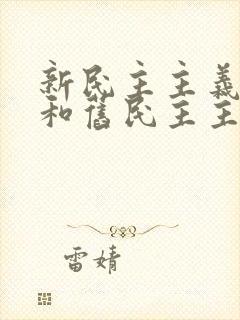 新民主主義
和舊民主主
雷婧